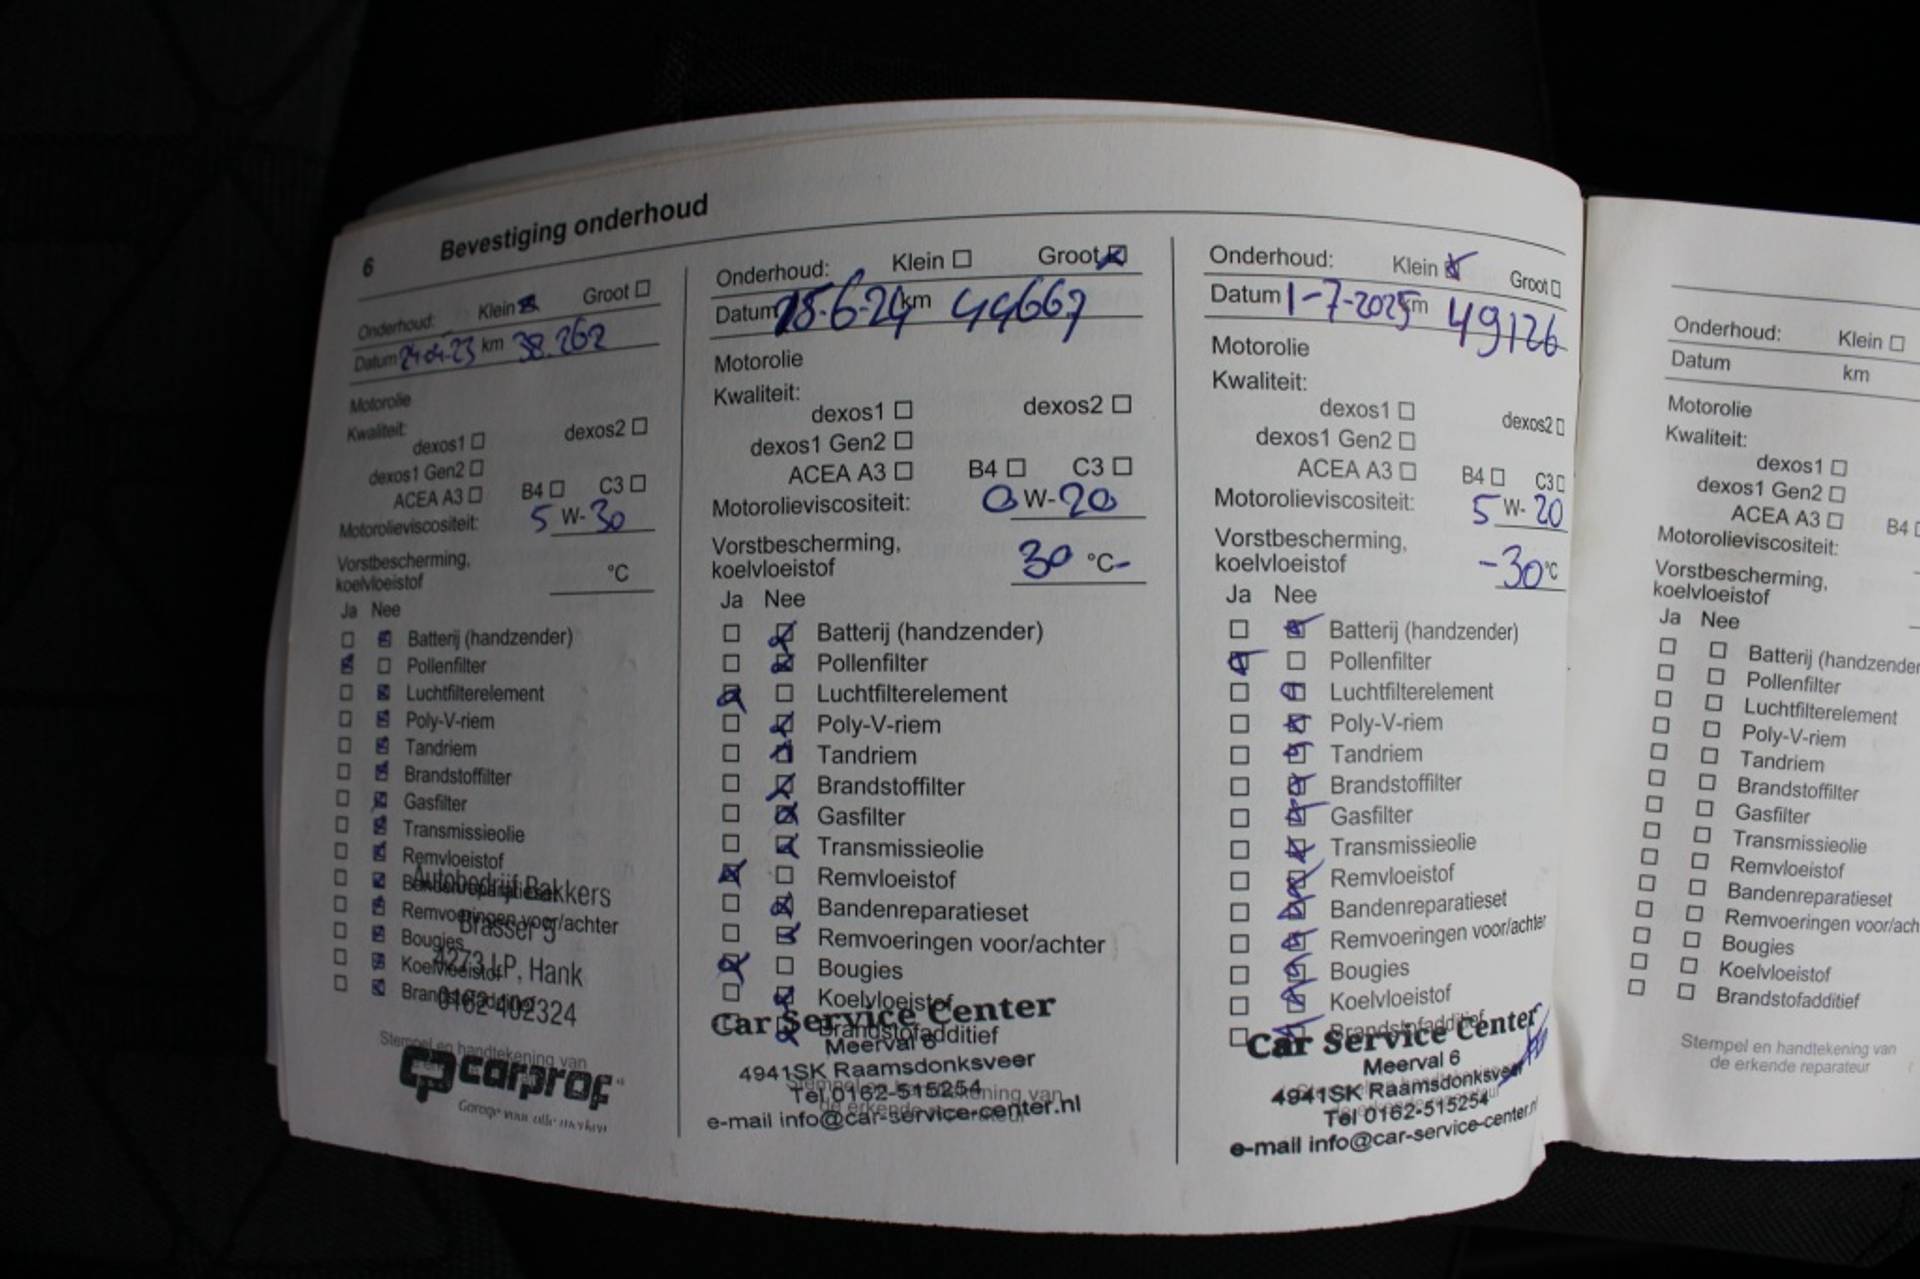 6 Bevestiging onderhoud
Onderhoud: Klein Groot
Datum 24-04-23 km 38.262
Motorolie
Kwaliteit:
dexos1 dexos2
dexos1 Gen2
ACEA A3 B4 C3
Motorolieviscositeit: 5 W- 30
Vorstbescherming,
koelvloeistof °C
Ja Nee
Batterij (handzender)
Pollenfilter
Luchtfilterelement
Poly-V-riem
Tandriem
Brandstoffilter
Gasfilter
Transmissieolie
Remvloeistof
Bandenreparatieset
Autobedrijf Bakkers
Remvoeringen voor/achter
Brasser 5
Bougies
4273 LP, Hank
Koelvloeistof
Brandstofadditief
0162-402324
Stempel en handtekening van
carprof
Garage voor alle merken
Onderhoud: Klein Groot
Datum 18-6-24 km 44667
Motorolie
Kwaliteit:
dexos1 dexos2
dexos1 Gen2
ACEA A3 B4 C3
Motorolieviscositeit: 0 W- 20
Vorstbescherming,
koelvloeistof 30 °C-
Ja Nee
Batterij (handzender)
Pollenfilter
Luchtfilterelement
Poly-V-riem
Tandriem
Brandstoffilter
Gasfilter
Transmissieolie
Remvloeistof
Bandenreparatieset
Remvoeringen voor/achter
Bougies
Koelvloeistof
Car Service Center
Brandstofadditief
Meerval 6
4941SK Raamsdonksveer
Stempel en handtekening van
Tel 0162-515254
de erkende reparateur
e-mail info@car-service-center.nl
Onderhoud: Klein Groot
Datum 1-7-2025 km 49126
Motorolie
Kwaliteit:
dexos1 dexos2
dexos1 Gen2
ACEA A3 B4 C3
Motorolieviscositeit: 5 W- 20
Vorstbescherming,
koelvloeistof -30 °C
Ja Nee
Batterij (handzender)
Pollenfilter
Luchtfilterelement
Poly-V-riem
Tandriem
Brandstoffilter
Gasfilter
Transmissieolie
Remvloeistof
Bandenreparatieset
Remvoeringen voor/achter
Bougies
Koelvloeistof
Brandstofadditief
Car Service Center
Meerval 6
4941SK Raamsdonksveer
Tel 0162-515254
e-mail info@car-service-center.n
Onderhoud: Klein
Datum km
Motorolie
Kwaliteit:
dexos1
dexos1 Gen2
ACEA A3 B4
Motorolieviscositeit:
Vorstbescherming,
koelvloeistof
Ja Nee
Batterij (handzender
Pollenfilter
Luchtfilterelement
Poly-V-riem
Tandriem
Brandstoffilter
Gasfilter
Transmissieolie
Remvloeistof
Bandenreparatieset
Remvoeringen voor/ach
Bougies
Koelvloeistof
Brandstofadditief
Stempel en handtekening van
de erkende reparateur